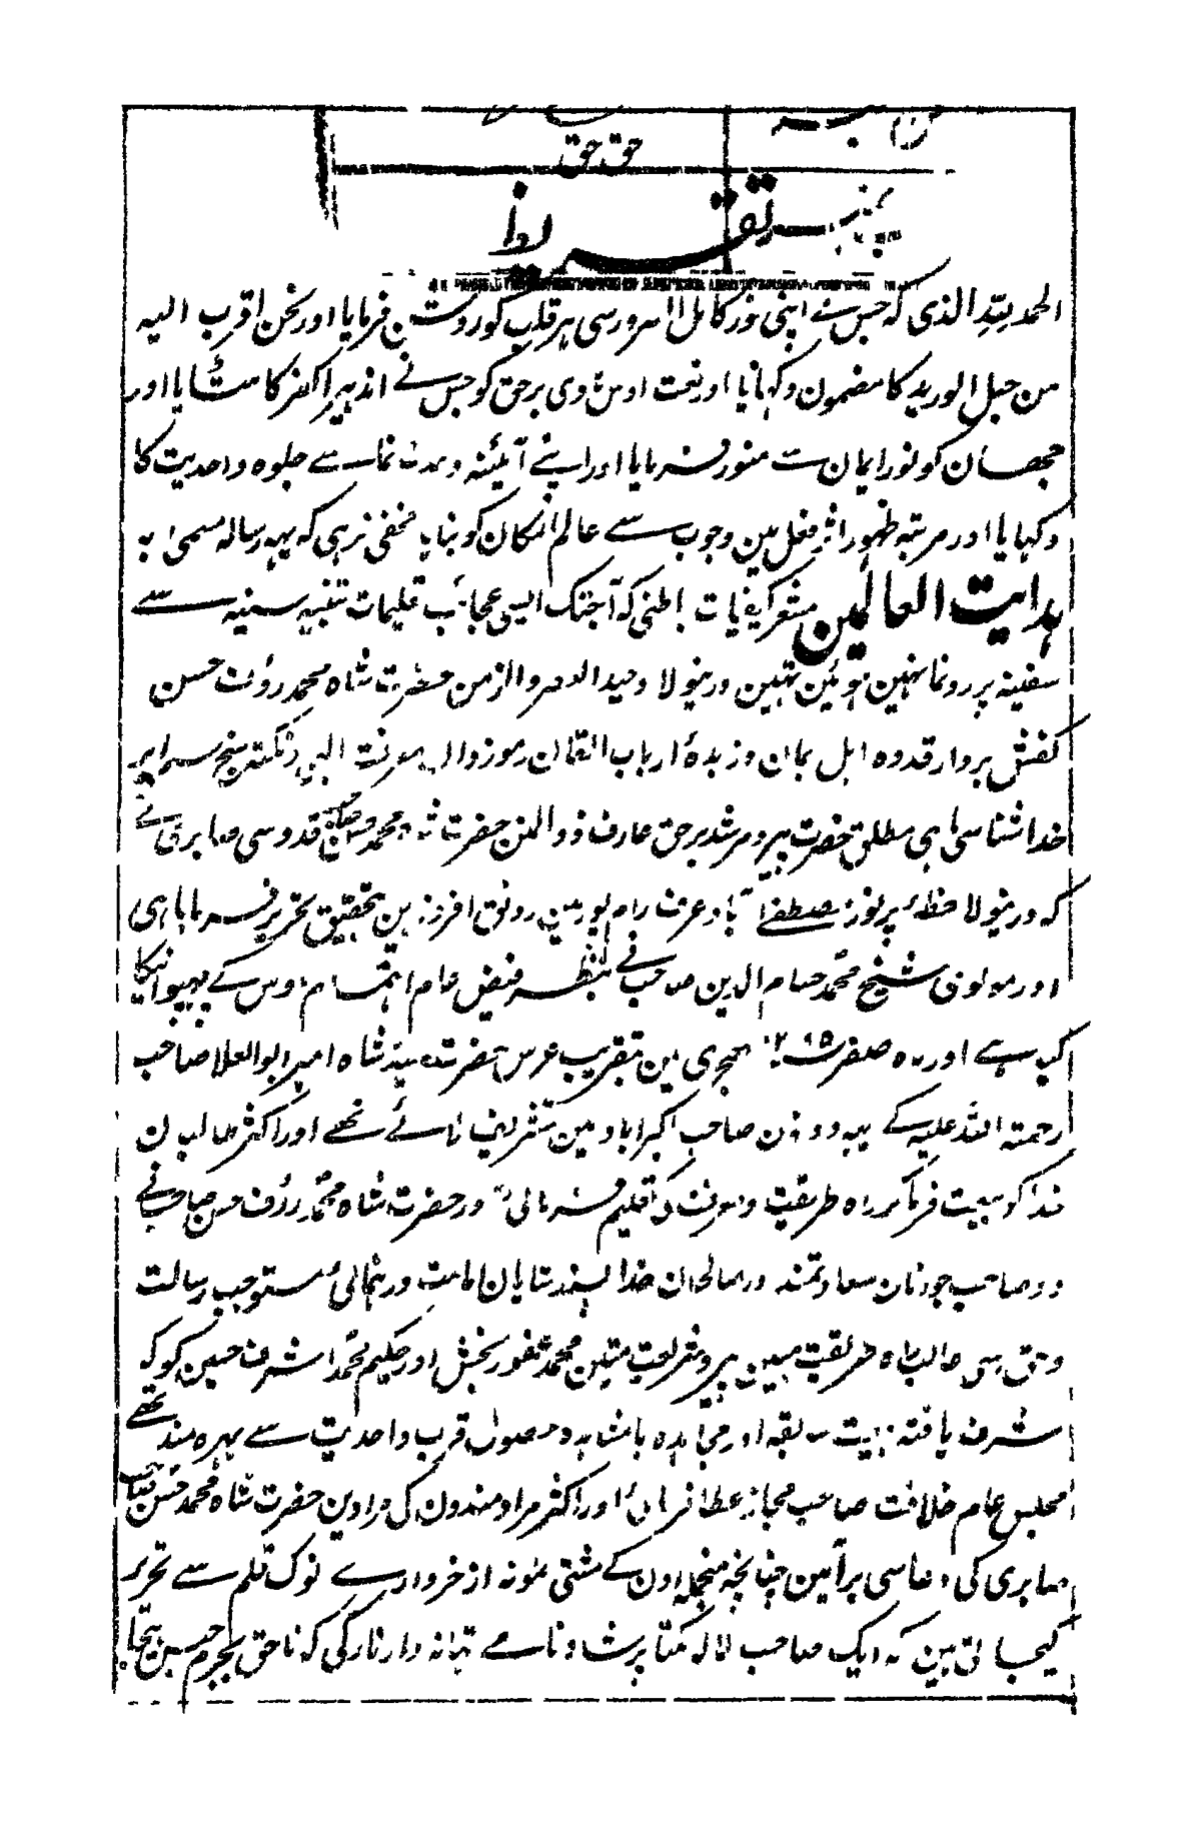 حق حق
تقریظ
الحمد للہ الذی کہ جس نے اپنی نور کامل السرور سی ہر قلب کو روشن فرمایا اور نحن اقرب الیہ
من حبل الورید کا مضمون دکہایا اور نعت اوس ہادی برحق کو جس نے اندہیرا کفر کا مٹایا اور
جہان کو نور ایمان سے منور فرمایا اور اپنے آئینہ وحدت نما سے جلوہ واحدیت کا
دکہایا اور مرتبہ ظہور اثر فعل مین وجوب سے عالم امکان کو بنایا مخفی نرہی کہ یہہ رسالہ مسمیٰ بہ
ہدایت العالمین مشعر کیفیات باطنی کہ آجتک ایسی عجائب تعلیمات سینہ سے
سفینہ پر رونما نہین ہوئین تہین درینولا وحید العصر والزمن حضرت شاہ محمد رؤف حسن
کفش بردار قدوہ اہل وزبدۂ ارباب رموز معرفت نکتہ سنج
خدا شناسی مطلق حضرت پیر و مرشد برحق عارف ذوالمنن حضرت شاہ محمد قدوسی صابری نے
کہ درینولا خطۂ پرنور مصطفے آباد عرف رام پور مین رونق افروز ہین تحقیق تحریر فرمایا ہی
اور مولوی شیخ محمد حسام الدین صاحب نے بنظر فیض عام اہتمام اوس کے چہپوانیکا
کیا ہے اور ماہ صفر ہجری مین بتقریب عرس حضرت سید شاہ امیر ابوالعلا صاحب
رحمتہ اللہ علیہ کے یہہ دونون صاحب اکبراباد مین تشریف لائے تھے اور اکثر طالبان
خدا کو بیعت فرما کر راہ طریقت و معرفت کی تعلیم فرمائی اور حضرت شاہ محمد رؤف حسن صاحب نے
دو صاحب جوانان سعادتمند و صالحان خدا پسند شایان امامت و رہنمائی مستوجب رسالت
وحق سی طالب راہ طریقت مبین پیرو شریعت متین محمد غفور بخش اور حکیم محمد اشرف حسین کو کہ
شرف یافتہ بیعت سابقہ اور مجاہدہ بامشاہدہ حصول قرب واحدیت سے بہرہ مند تھے
مجلس عام خلافت صاحب مجاز عطا فرمائی اور اکثر مراد مندون کی مرادین حضرت شاہ محمد حسن صاحب
صابری کی دعا سی برآئین چنانچہ منجملہ اون کے مشتی نمونہ از خروارے نوک قلم سے تحریر
کیجاتی ہین کہ ایک صاحب لالہ گنگا پرشاد نامے تہانہ دار نارکی کہ ناحق بجرم